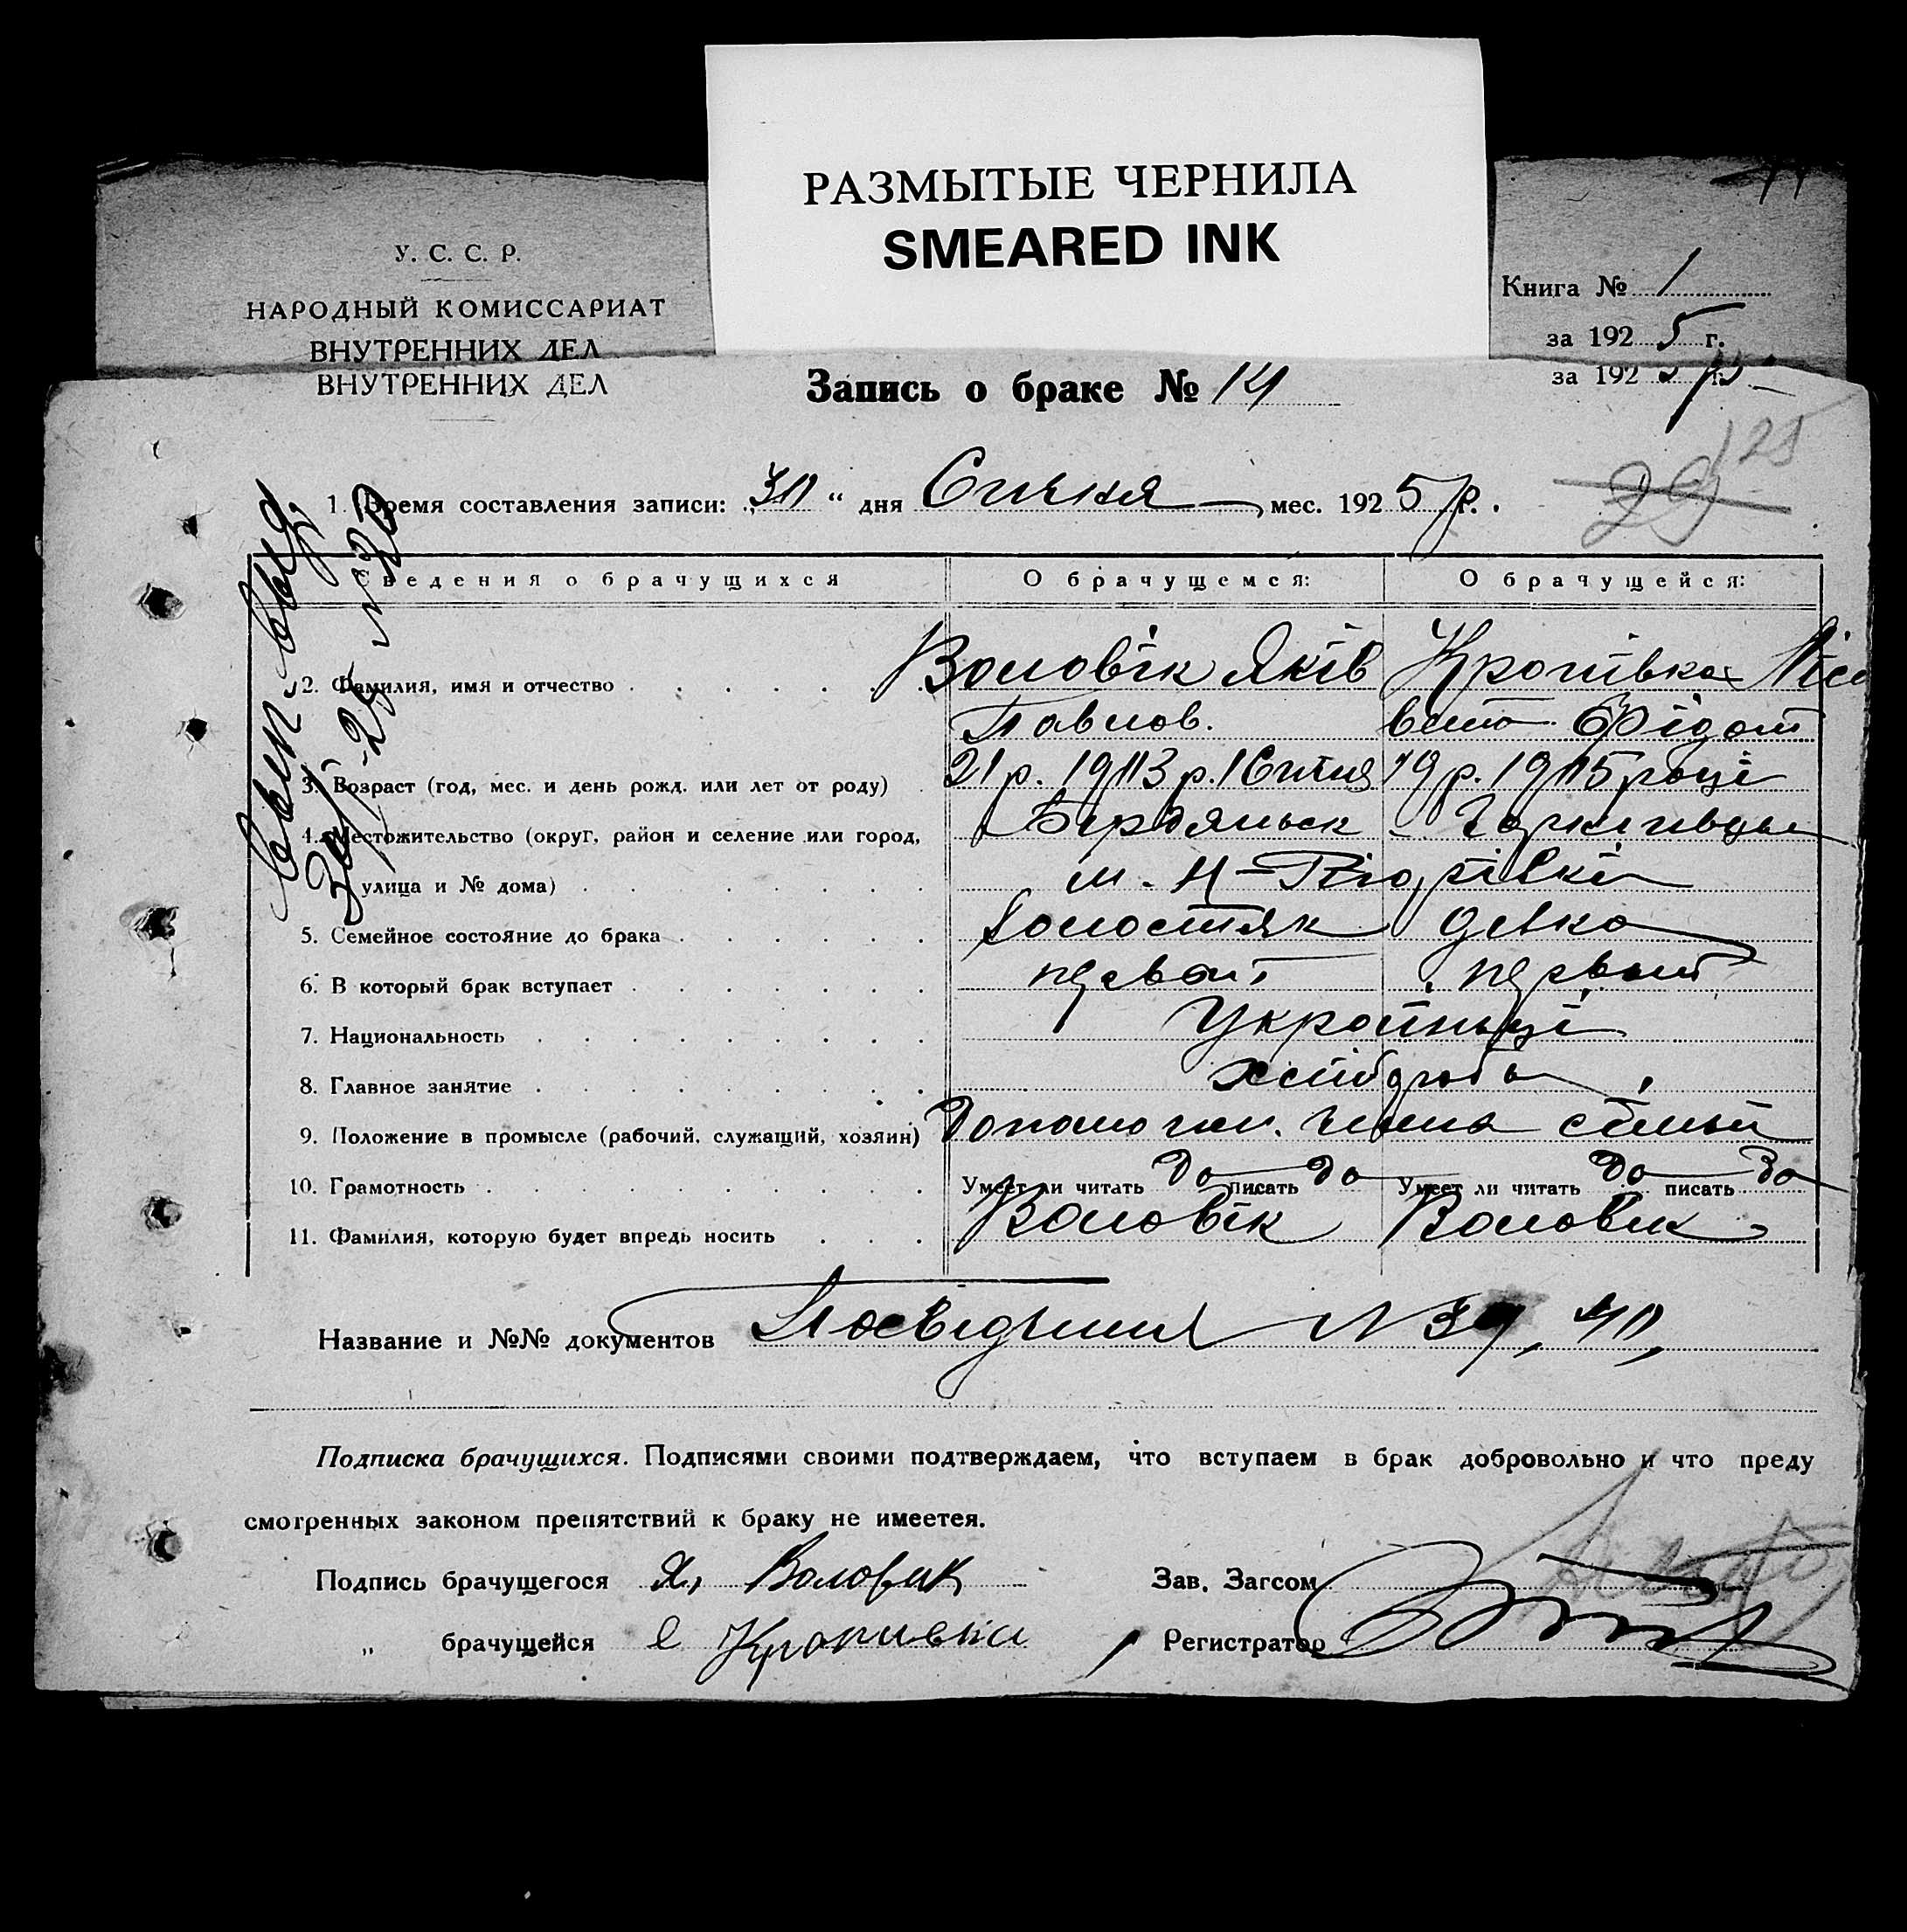 РАЗМЫТЫЕ ЧЕРНИЛА
SMEARED INK
У. С. С. Р.
НАРОДНЫЙ КОМИССАРИАТ
ВНУТРЕННИХ ДЕЛ
Книга № 1
за 1925 г.
ВНУТРЕННИХ ДЕЛ
Запись о браке № 14
за 192 г.
25
29
1. Время составления записи: „30“ дня Січня мес. 1925 р.
Сведения о брачущихся О брачущемся: О брачущейся:
2. Фамилия, имя и отчество Воловік Яків Кропівка Ліса
Павлов. вета Фідот
3. Возраст (год, мес. и день рожд. или лет от роду) 21 р. 1903 р. 1 Січня 19 р. 1905 році
4. Местожительство (округ, район и селение или город, Бердянськ
улица и № дома) м. Н-
5. Семейное состояние до брака Холостяк девка
6. В который брак вступает первый первый
7. Национальность Українці
8. Главное занятие хлібороби
9. Положение в промысле (рабочий, служащий, хозяин) Допомогаю. члена сімьи
10. Грамотность Умеет ли читать Да писать Да Умеет ли читать Да писать Да
11. Фамилия, которую будет впредь носить Воловік Воловик
Название и №№ документов Посвідчення № 39, 40,
Подписка брачущихся. Подписями своими подтверждаем, что вступаем в брак добровольно и что преду
смотренных законом препятствий к браку не имеется.
Подпись брачущегося Я. Воловик Зав. Загсом
„ брачущейся Е Кропивка Регистратор